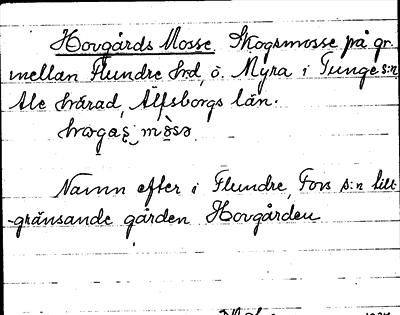 Hovgårds Mosse. Skogsmosse på gr.
mellan Flundre hrd, ö. Myra i Tunge s:n
Ale härad, Älfsborgs län.
Namn efter i Flundre, Fors s:n till-
-gränsande gården Hovgården